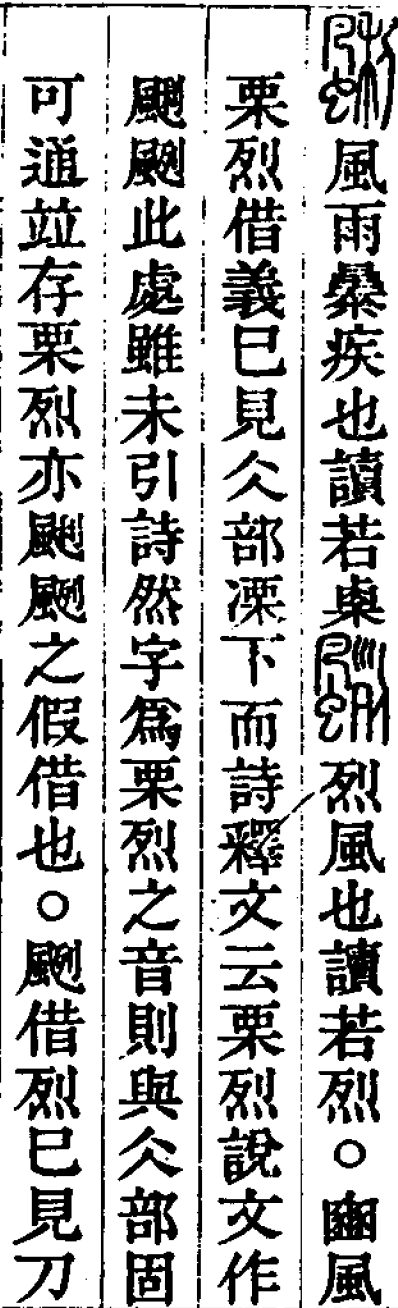 颲風雨暴疾也讀若㮚䬅烈風也讀若烈○豳風
栗烈借義巳見仌部凓下而詩釋文云栗烈說文作
颲䬅此處雖未引詩然字爲栗烈之音則與仌部固
可通竝存栗烈亦颲䬅之假借也○䬅借烈巳見刀